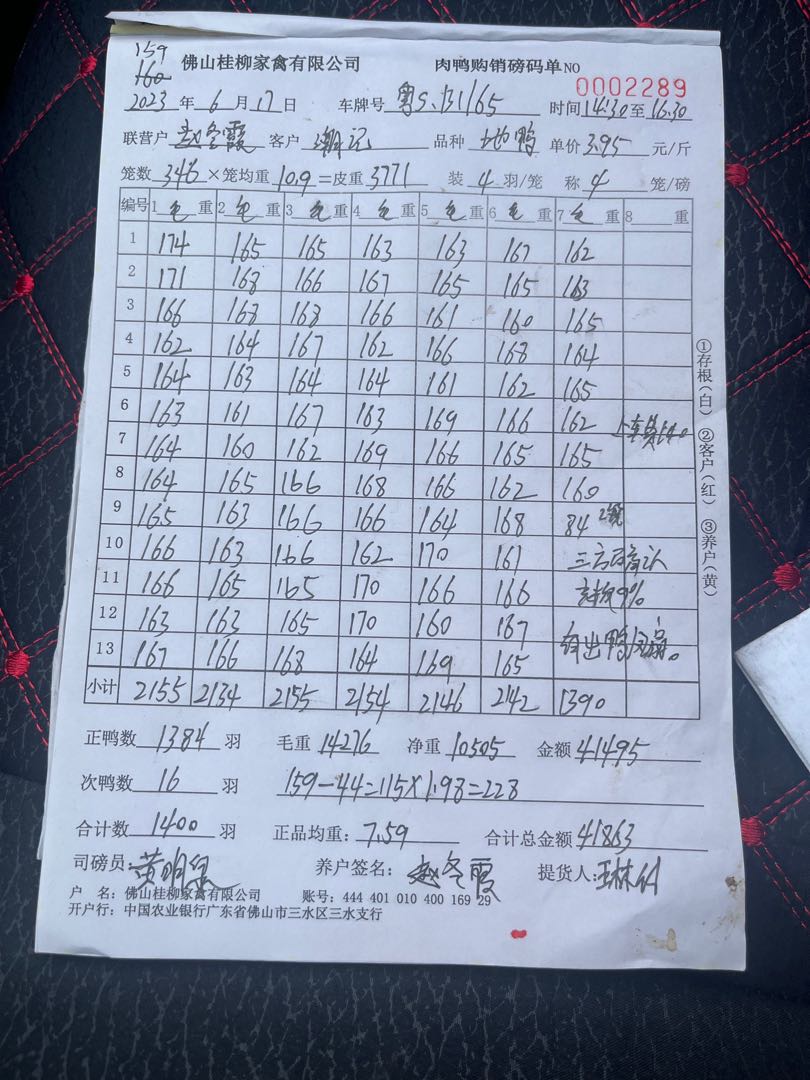 159
160
佛山桂柳家禽有限公司 肉鸭购销磅码单NO 0002289
2023 年 6 月 17 日 车牌号 粤S.B1165 时间 14:30 至 16:30
联营户 赵冬霞 客户 潮记 品种 地鸭 单价 3.95 元/斤
笼数 346 ×笼均重 10.9 =皮重 3771 装 4 羽/笼 称 4 笼/磅
编号 1 毛 重 2 毛 重 3 毛 重 4 毛 重 5 毛 重 6 毛 重 7 毛 重 8 重
1 174 165 165 163 163 167 162
2 171 168 166 167 165 165 163
3 166 168 168 166 161 160 165
4 162 164 167 162 166 168 164
5 164 163 164 164 161 162 165
6 163 161 167 163 169 166 162 上车费140
7 164 160 162 169 166 165 165
8 164 165 166 168 166 162 160
9 165 163 166 166 164 168 84 2笼
10 166 163 166 162 170 161 三方确认
11 166 165 165 170 166 166 9%
12 163 163 165 170 160 167
13 167 166 168 164 169 165 出鸭
小计 2155 2134 2155 2154 2146 2142 1390
正鸭数 1384 羽 毛重 14276 净重 10505 金额 41495
次鸭数 16 羽 159-44=115×1.98=228
合计数 1400 羽 正品均重: 7.59 合计总金额 41863
司磅员: 黄明 养户签名: 赵冬霞 提货人:
户 名: 佛山桂柳家禽有限公司 账号: 444 401 010 400 169 29
开户行: 中国农业银行广东省佛山市三水区三水支行
①存根(白) ②客户(红) ③养户(黄)